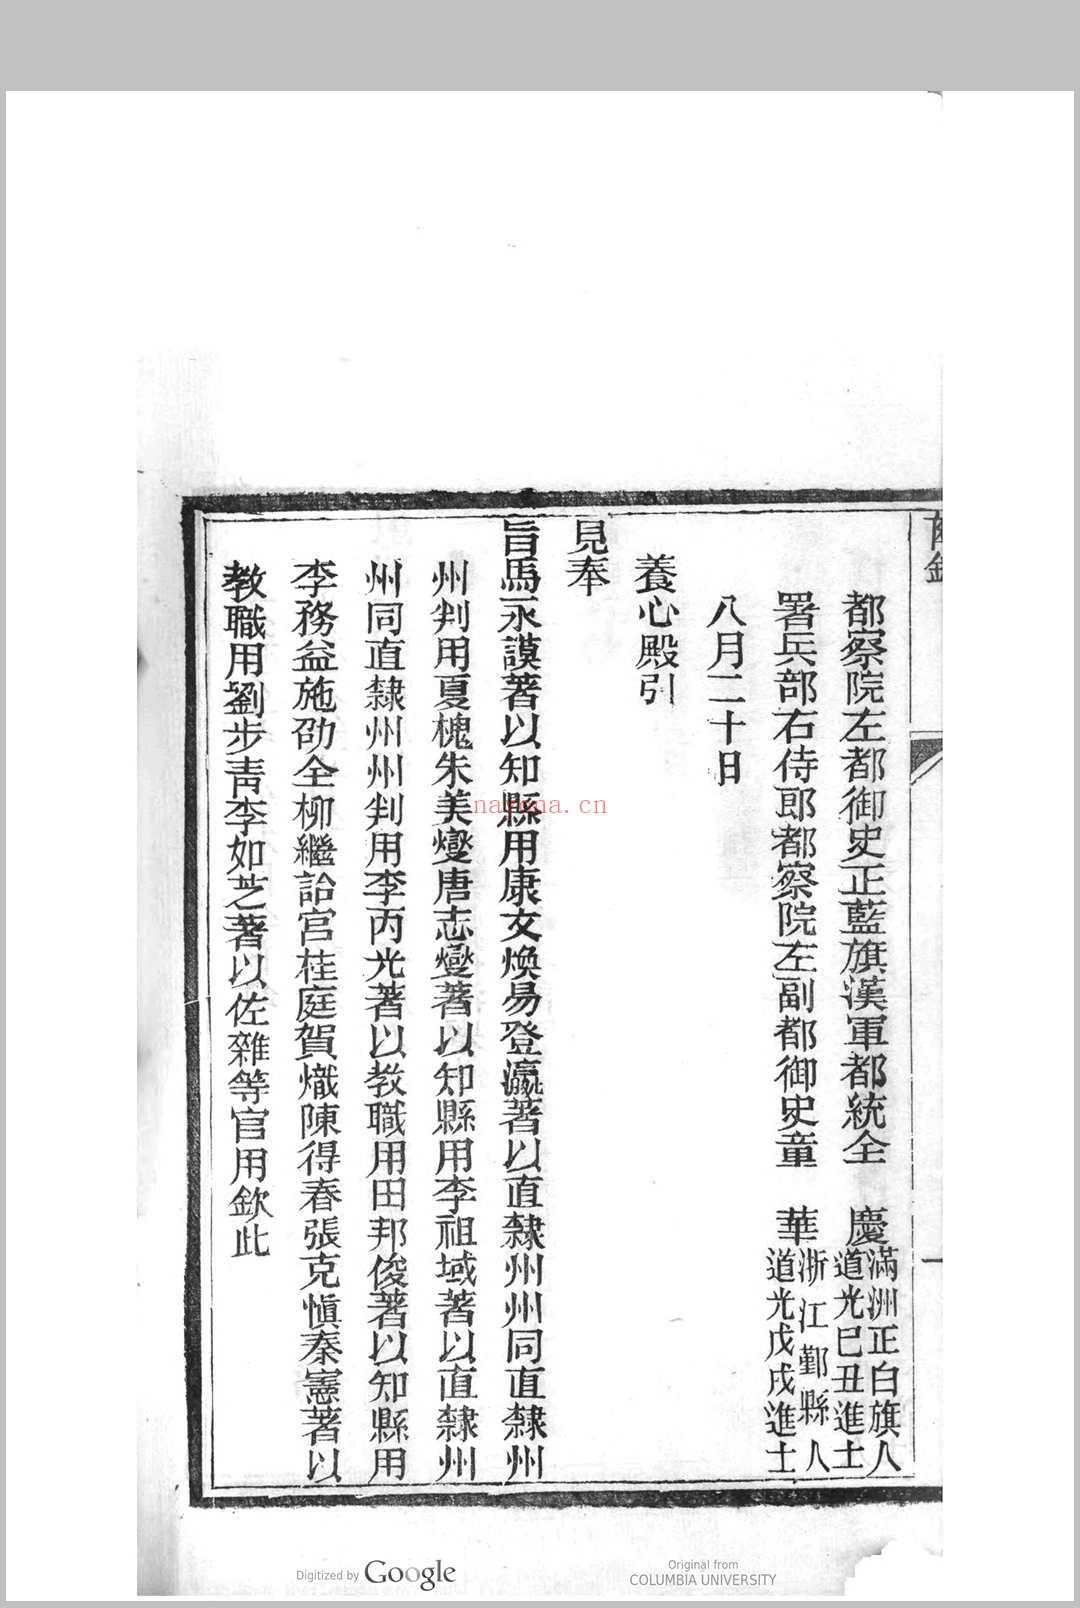 都察院左都御史正藍旗漢軍都統全 慶 滿洲正白旗人 道光巳丑進士
署兵部右侍郎都察院左副都御史童 華 浙江鄞縣人 道光戊戌進士
八月二十日
養心殿引
見奉
旨馬永謨著以知縣用康文煥易登瀛著以直隸州州同直隸州
州判用夏槐朱美燮唐志燮著以知縣用李祖域著以直隸州
州同直隸州州判用李丙光著以教職用田邦俊著以知縣用
李務益施劭全柳繼詒宮桂庭賀熾陳得春張克愼秦憲著以
教職用劉步青李如芝著以佐雜等官用欽此
nayona.cn
Digitized by Google
Original from
COLUMBIA UNIVERSITY